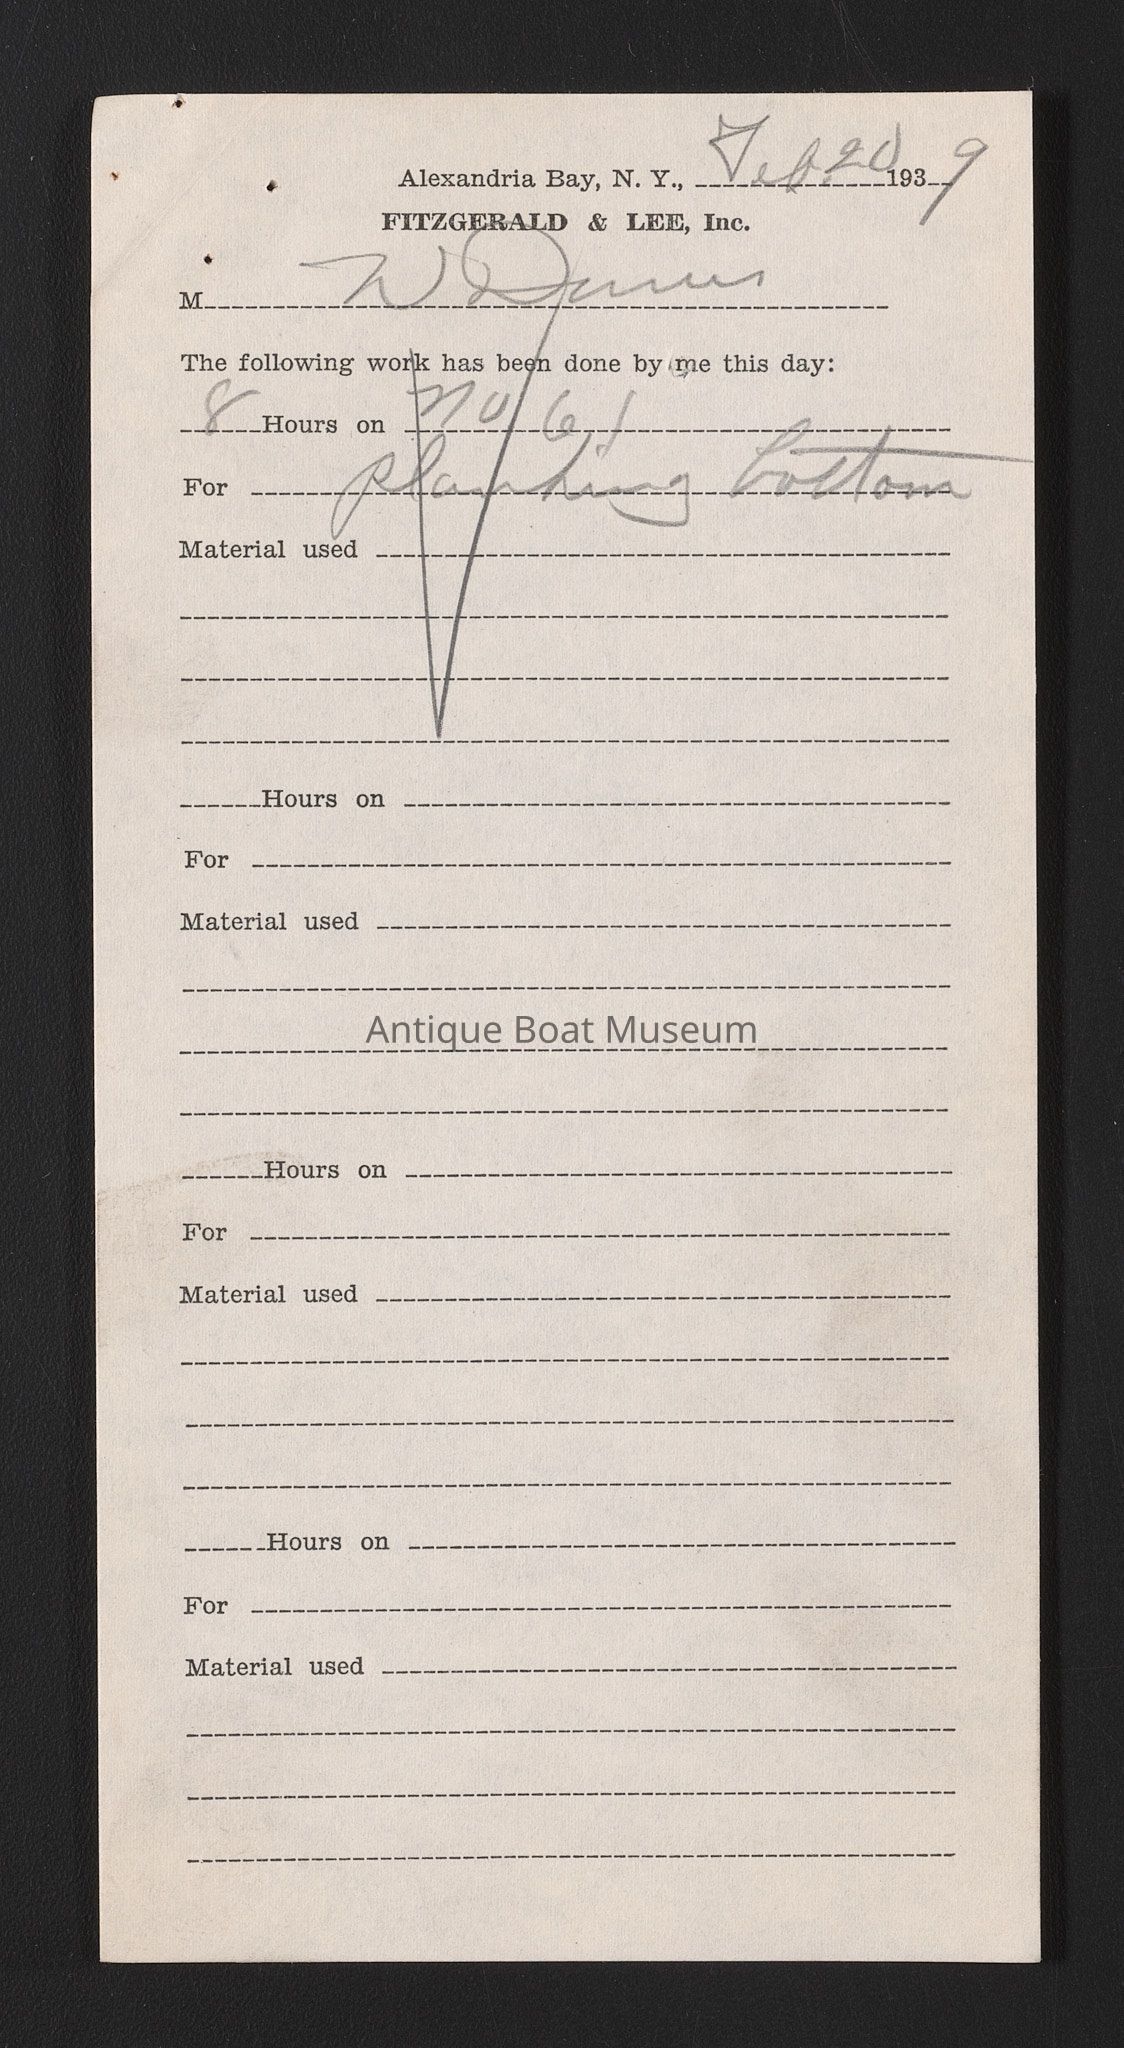 Alexandria Bay, N. Y., Feb. 20 1939
FITZGERALD & LEE, Inc.
M W
The following work has been done by me this day:
8 Hours on no 61
For planking bottom
Material used
Hours on
For
Material used
Antique Boat Museum
Hours on
For
Material used
Hours on
For
Material used